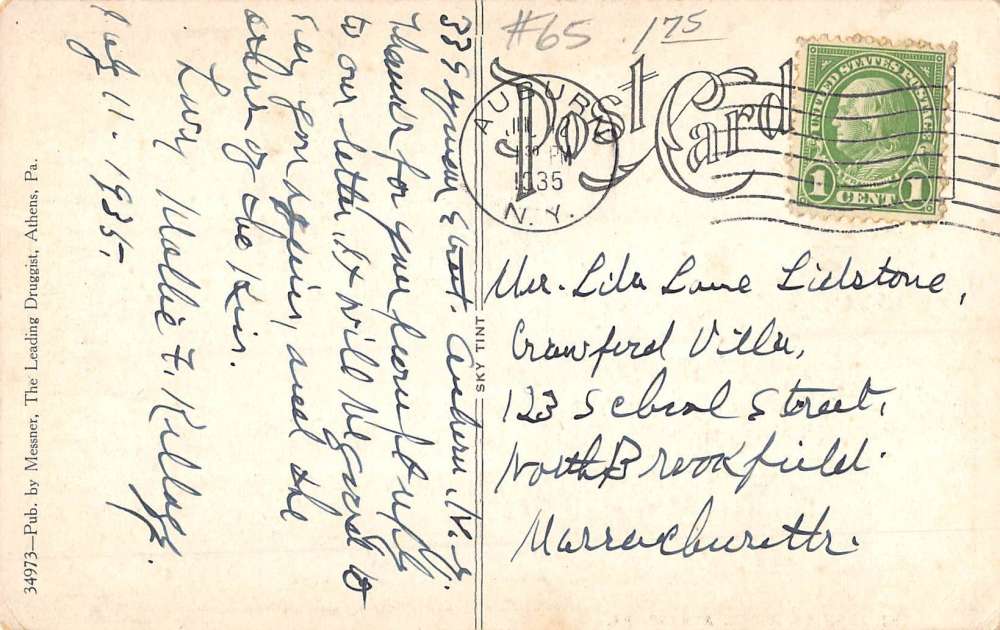 #65 1.75
Post Card
AUBURN
JUL
30 PM
1935
N. Y.
UNITED STATES POSTAGE
FRANKLIN
1 CENT 1
Lila Lane Lidstone,
Crawford Villa,
123 School Street,
North Brookfield.
Massachusetts.
33 Street. Auburn. N.Y.
Thanks for your prompt reply
to our letter, it will be good to
you again, and the
others of the Kin.
Mollie F. Kellogg
July 11. 1935.
SKY TINT
34973—Pub. by Messner, The Leading Druggist, Athens, Pa.